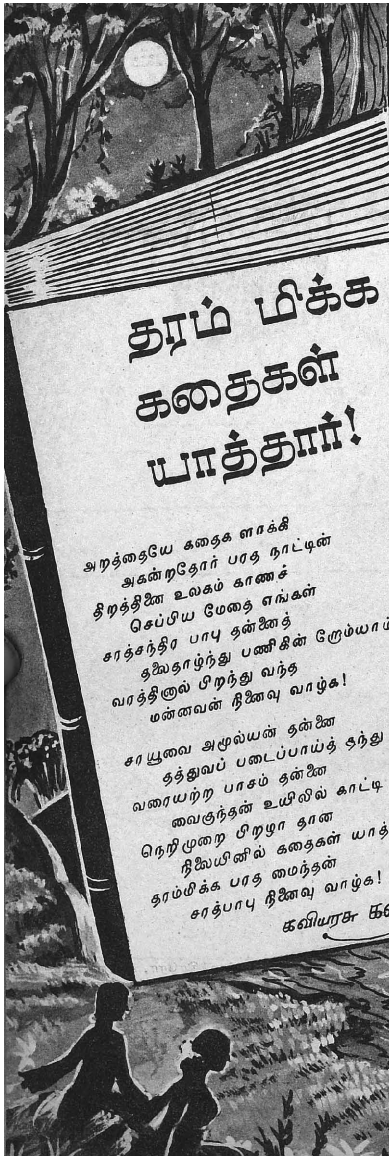 தரம் மிக்க
கதைகள்
யாத்தார்!
அறத்தையே கதைக ளாக்கி
அகன்றதோர் பரத நாட்டின்
திறத்தினை உலகம் காணச்
செப்பிய மேதை எங்கள்
சரத்சந்திர பாபு தன்னைத்
தலைதாழ்ந்து பணிகின் றோம்யாம்
வரத்தினால் பிறந்து வந்த
மன்னவன் நினைவு வாழ்க!
சாயூவை அமூல்யன் தன்னை
தத்துவப் படைப்பாய்த் தந்து
வரையற்ற பாசம் தன்னை
வைகுந்தன் உயிலில் காட்டி
நெறிமுறை பிறழா தான
நிலையினில் கதைகள் யாத்
தரம்மிக்க பரத மைந்தன்
சரத்பாபு நினைவு வாழ்க!
கவியரசு